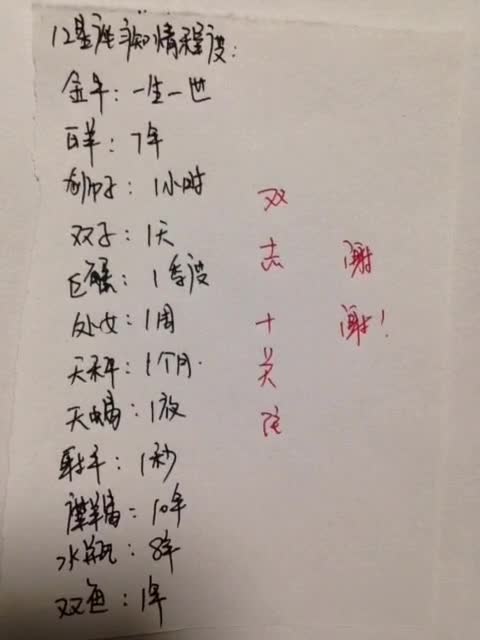 12星座知情程度:
金牛:一生一世
白羊:7年
狮子:1小时
双子:1天
巨蟹:1季度
处女:1周
天秤:1个月.
天蝎:1夜
射手:1秒
摩羯:10年
水瓶:8年
双鱼:1年
双
击
+
关
注
谢
谢!